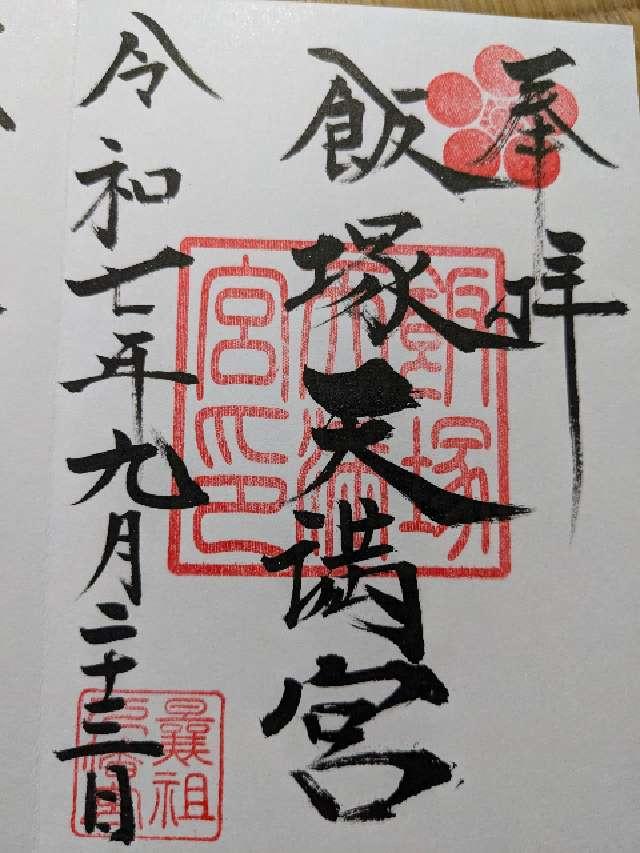 奉拝
飯塚天満宮
飯塚
天満
宮印
令和七年九月二十三日
曩祖
八幡宮